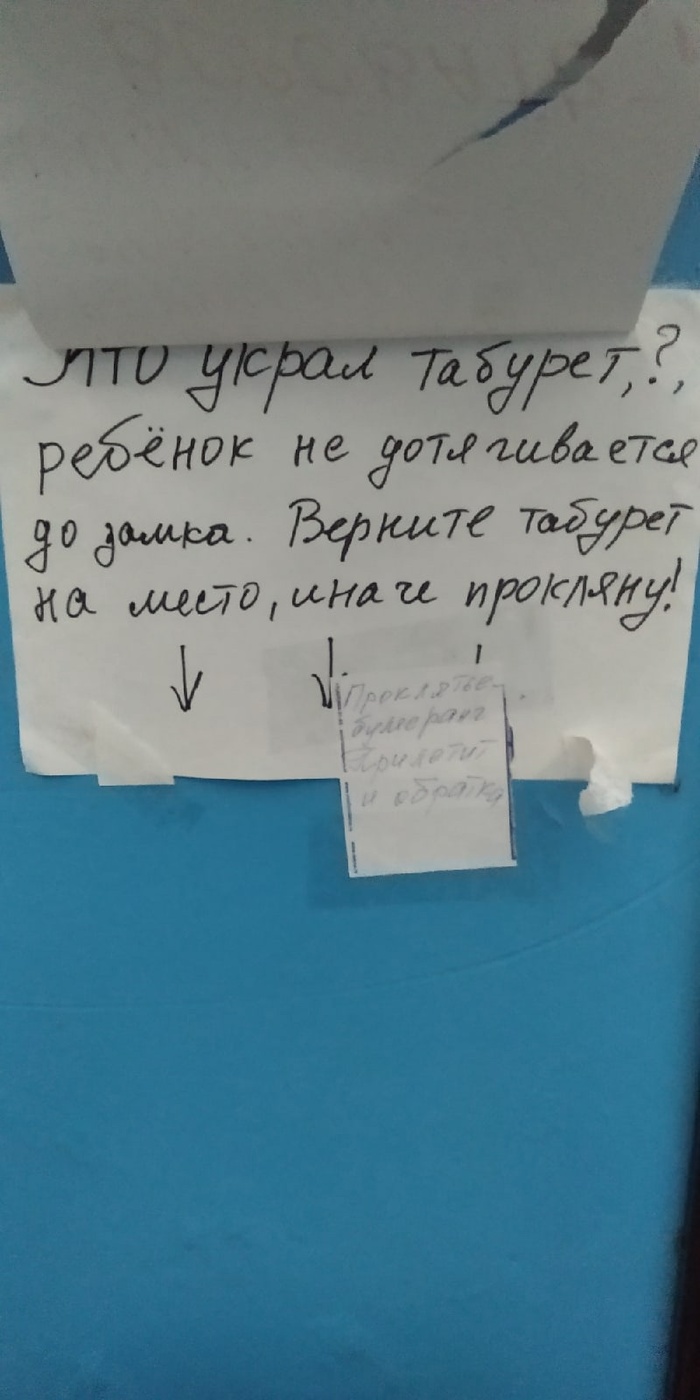 Кто украл табурет,?,
ребёнок не дотягивается
до замка. Верните табурет
на место, иначе прокляну!
Проклятье-
бумеранг
Прилетит
и обратка